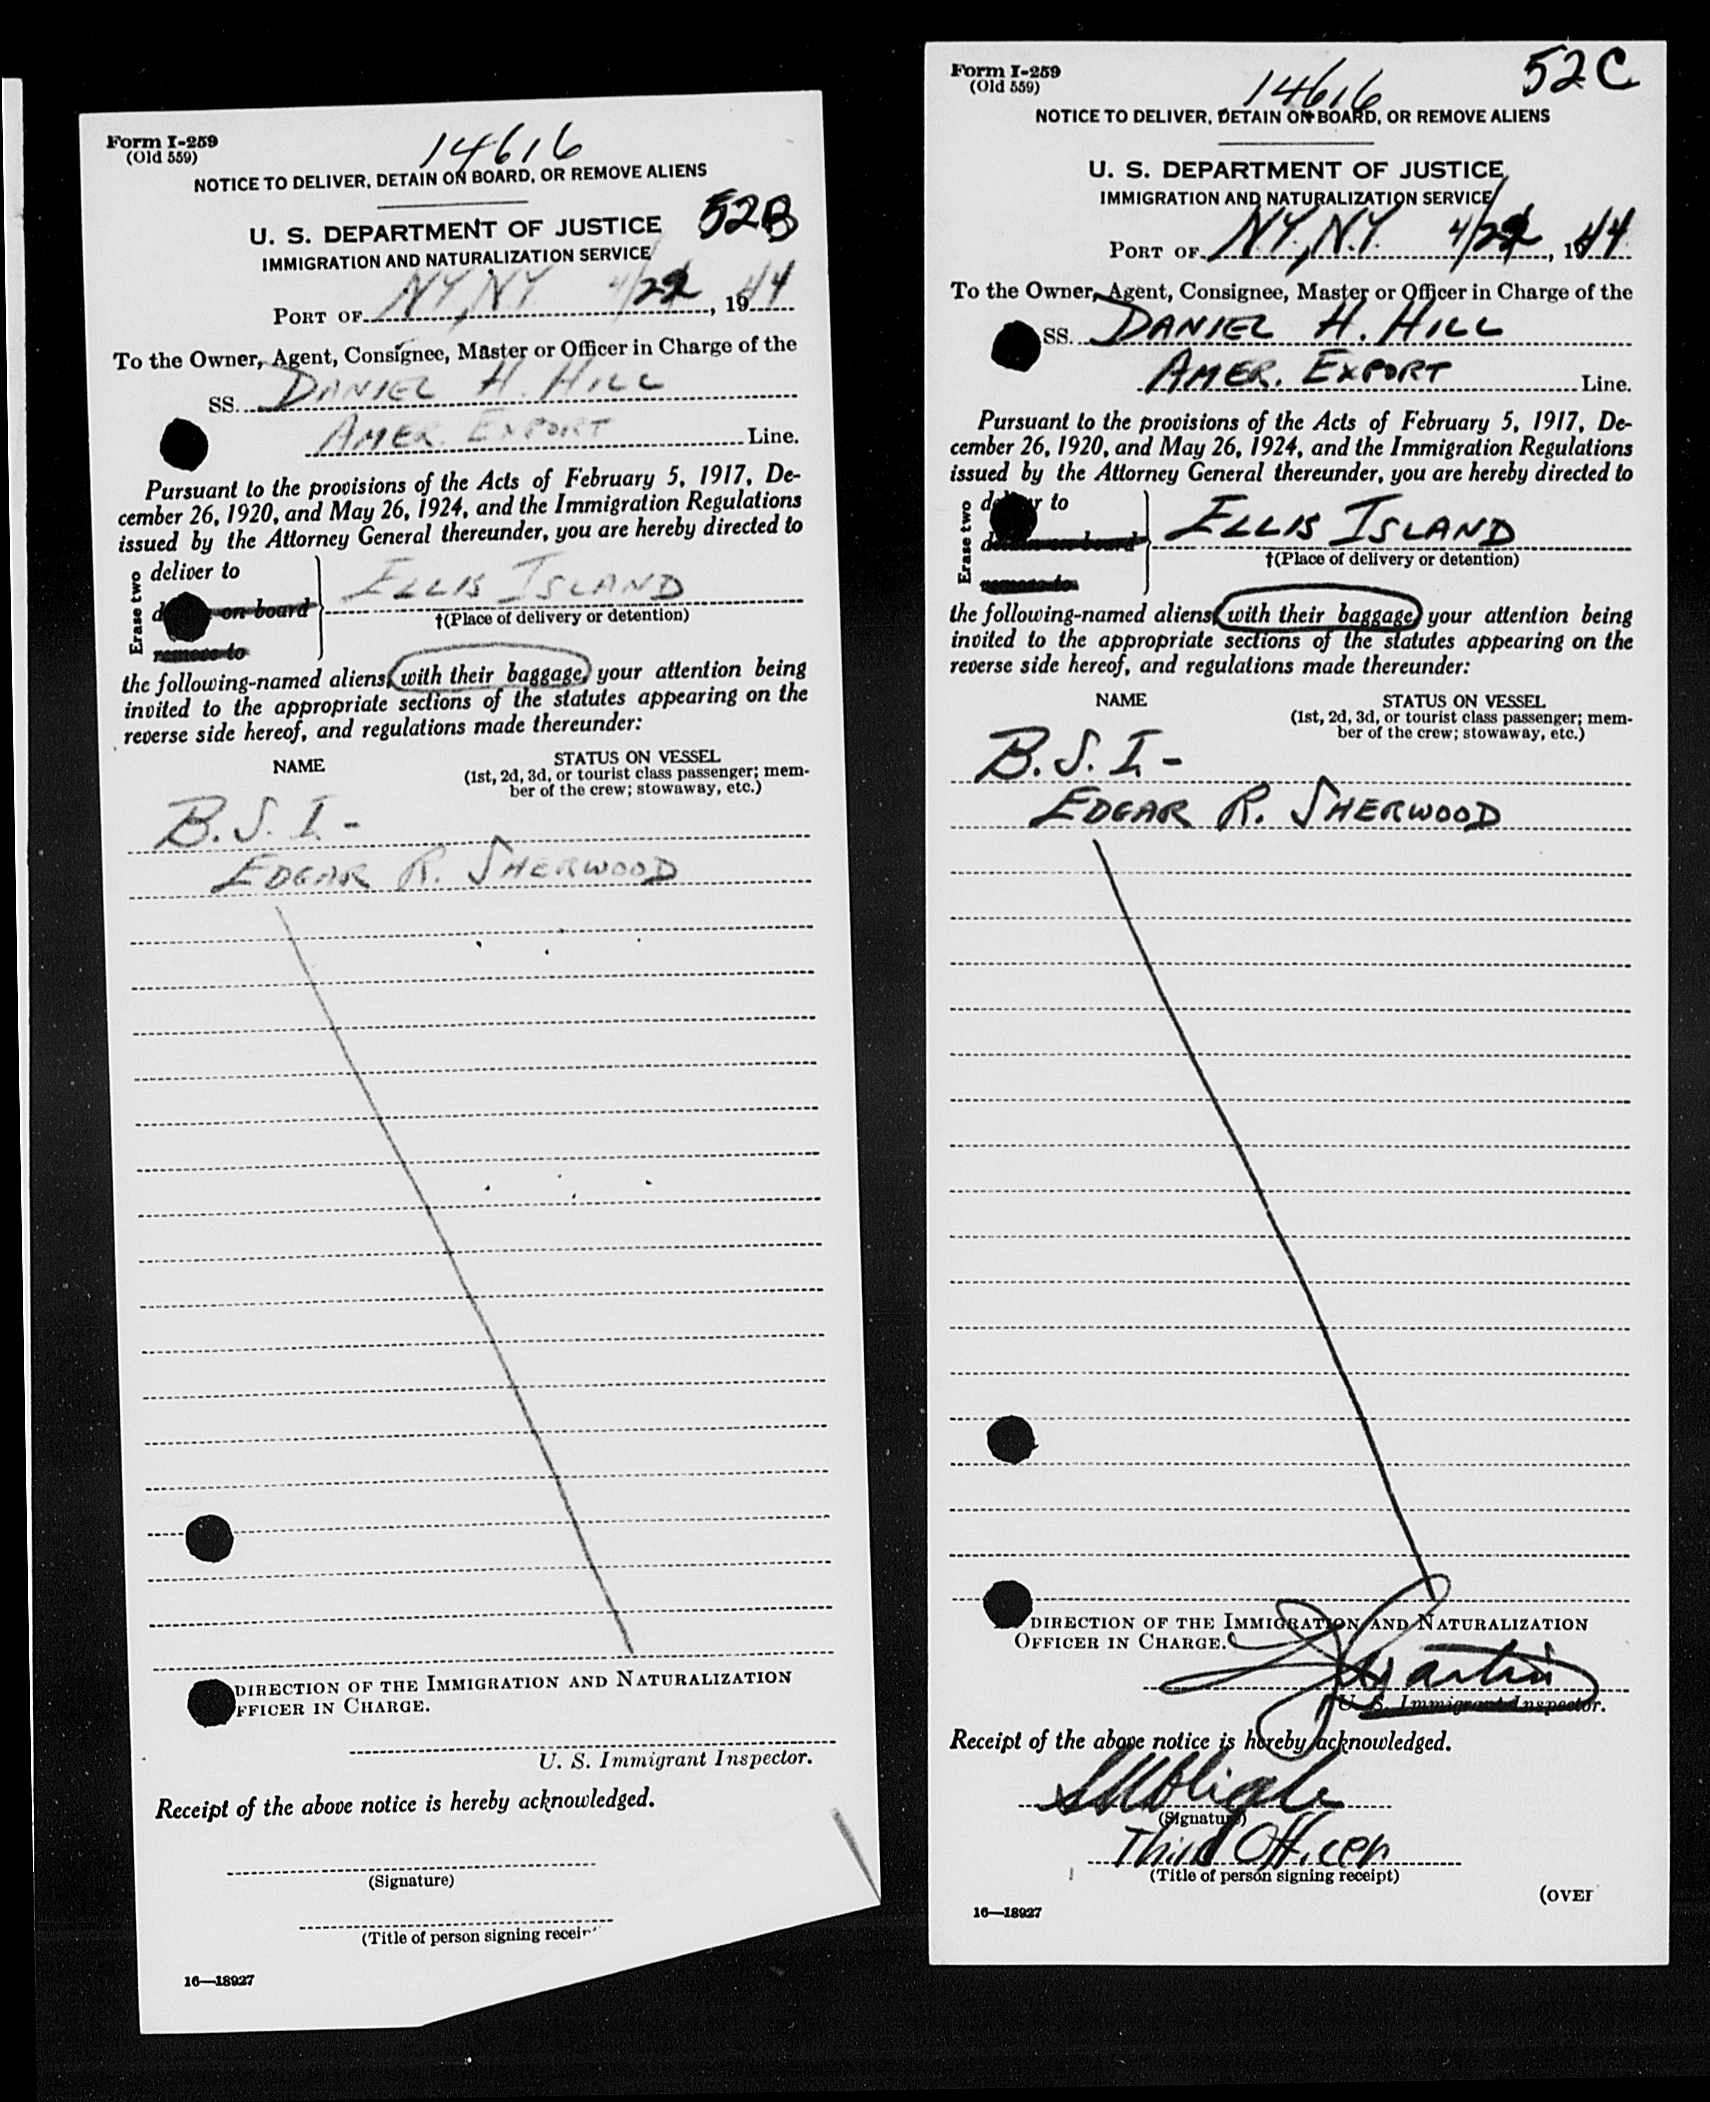 Form I-259
(Old 559)
14616
NOTICE TO DELIVER, DETAIN ON BOARD, OR REMOVE ALIENS
52B
U. S. DEPARTMENT OF JUSTICE
IMMIGRATION AND NATURALIZATION SERVICE
PORT OF NY, NY 4/22, 1944
To the Owner, Agent, Consignee, Master or Officer in Charge of the
SS. DANIEL H. HILL
AMER. EXPORT Line.
Pursuant to the provisions of the Acts of February 5, 1917, De-
cember 26, 1920, and May 26, 1924, and the Immigration Regulations
issued by the Attorney General thereunder, you are hereby directed to
Erase two
deliver to
on board
remove to
ELLIS ISLAND
†(Place of delivery or detention)
the following-named aliens, with their baggage, your attention being
invited to the appropriate sections of the statutes appearing on the
reverse side hereof, and regulations made thereunder:
NAME
STATUS ON VESSEL
(1st, 2d, 3d, or tourist class passenger; mem-
ber of the crew; stowaway, etc.)
B.S.I. -
EDGAR R. SHERWOOD
DIRECTION OF THE IMMIGRATION AND NATURALIZATION
FFICER IN CHARGE.
U. S. Immigrant Inspector.
Receipt of the above notice is hereby acknowledged.
(Signature)
(Title of person signing receip
16—18927
Form I-259
(Old 559)
14616
52C
NOTICE TO DELIVER, DETAIN ON BOARD, OR REMOVE ALIENS
U. S. DEPARTMENT OF JUSTICE
IMMIGRATION AND NATURALIZATION SERVICE
PORT OF N.Y., N.Y. 4/22, 1944
To the Owner, Agent, Consignee, Master or Officer in Charge of the
SS. DANIEL H. HILL
AMER. EXPORT Line.
Pursuant to the provisions of the Acts of February 5, 1917, De-
cember 26, 1920, and May 26, 1924, and the Immigration Regulations
issued by the Attorney General thereunder, you are hereby directed to
Erase two
deliver to
detain on board
remove to
ELLIS ISLAND
†(Place of delivery or detention)
the following-named aliens, with their baggage, your attention being
invited to the appropriate sections of the statutes appearing on the
reverse side hereof, and regulations made thereunder:
NAME
STATUS ON VESSEL
(1st, 2d, 3d, or tourist class passenger; mem-
ber of the crew; stowaway, etc.)
B.S.I. -
EDGAR R. SHERWOOD
DIRECTION OF THE IMMIGRATION AND NATURALIZATION
OFFICER IN CHARGE.
Martin
U. S. Immigrant Inspector.
Receipt of the above notice is hereby acknowledged.
(Signature)
Third Officer
(Title of person signing receipt)
(OVER
16—18927